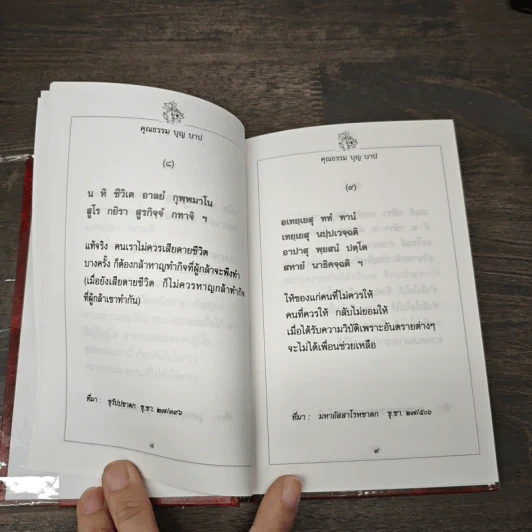 คุณธรรม บุญ บาป
(๘)
น หิ ชีวิเต อาลยํ กุพฺพมาโน
สูโร กยิรา สูรกิจฺจํ กทาจิ ฯ
แท้จริง คนเราไม่ควรเสียดายชีวิต
บางครั้ง ก็ต้องกล้าหาญทำกิจที่ผู้กล้าจะพึงทำ
(เมื่อยังเสียดายชีวิต ก็ไม่ควรหาญกล้าทำกิจ
ที่ผู้กล้าเขาทำกัน)
ที่มา : ขุ.ชา. ๒๗/๓๙๖
๘
คุณธรรม บุญ บาป
(๙)
อเทยฺเยสุ ททํ ทานํ
เทยฺเยสุ นปฺปเวจฺฉติ
อาปาสุ พฺยสนํ ปตฺโต
สหายํ นาธิคจฺฉติ ฯ
ให้ของแก่คนที่ไม่ควรให้
คนที่ควรให้ กลับไม่ยอมให้
เมื่อได้รับความวิบัติเพราะอันตรายต่างๆ
จะไม่ได้เพื่อนช่วยเหลือ
ที่มา : มหาอัสสาโรหชาดก ขุ.ชา. ๒๗/๕๐๖
๙